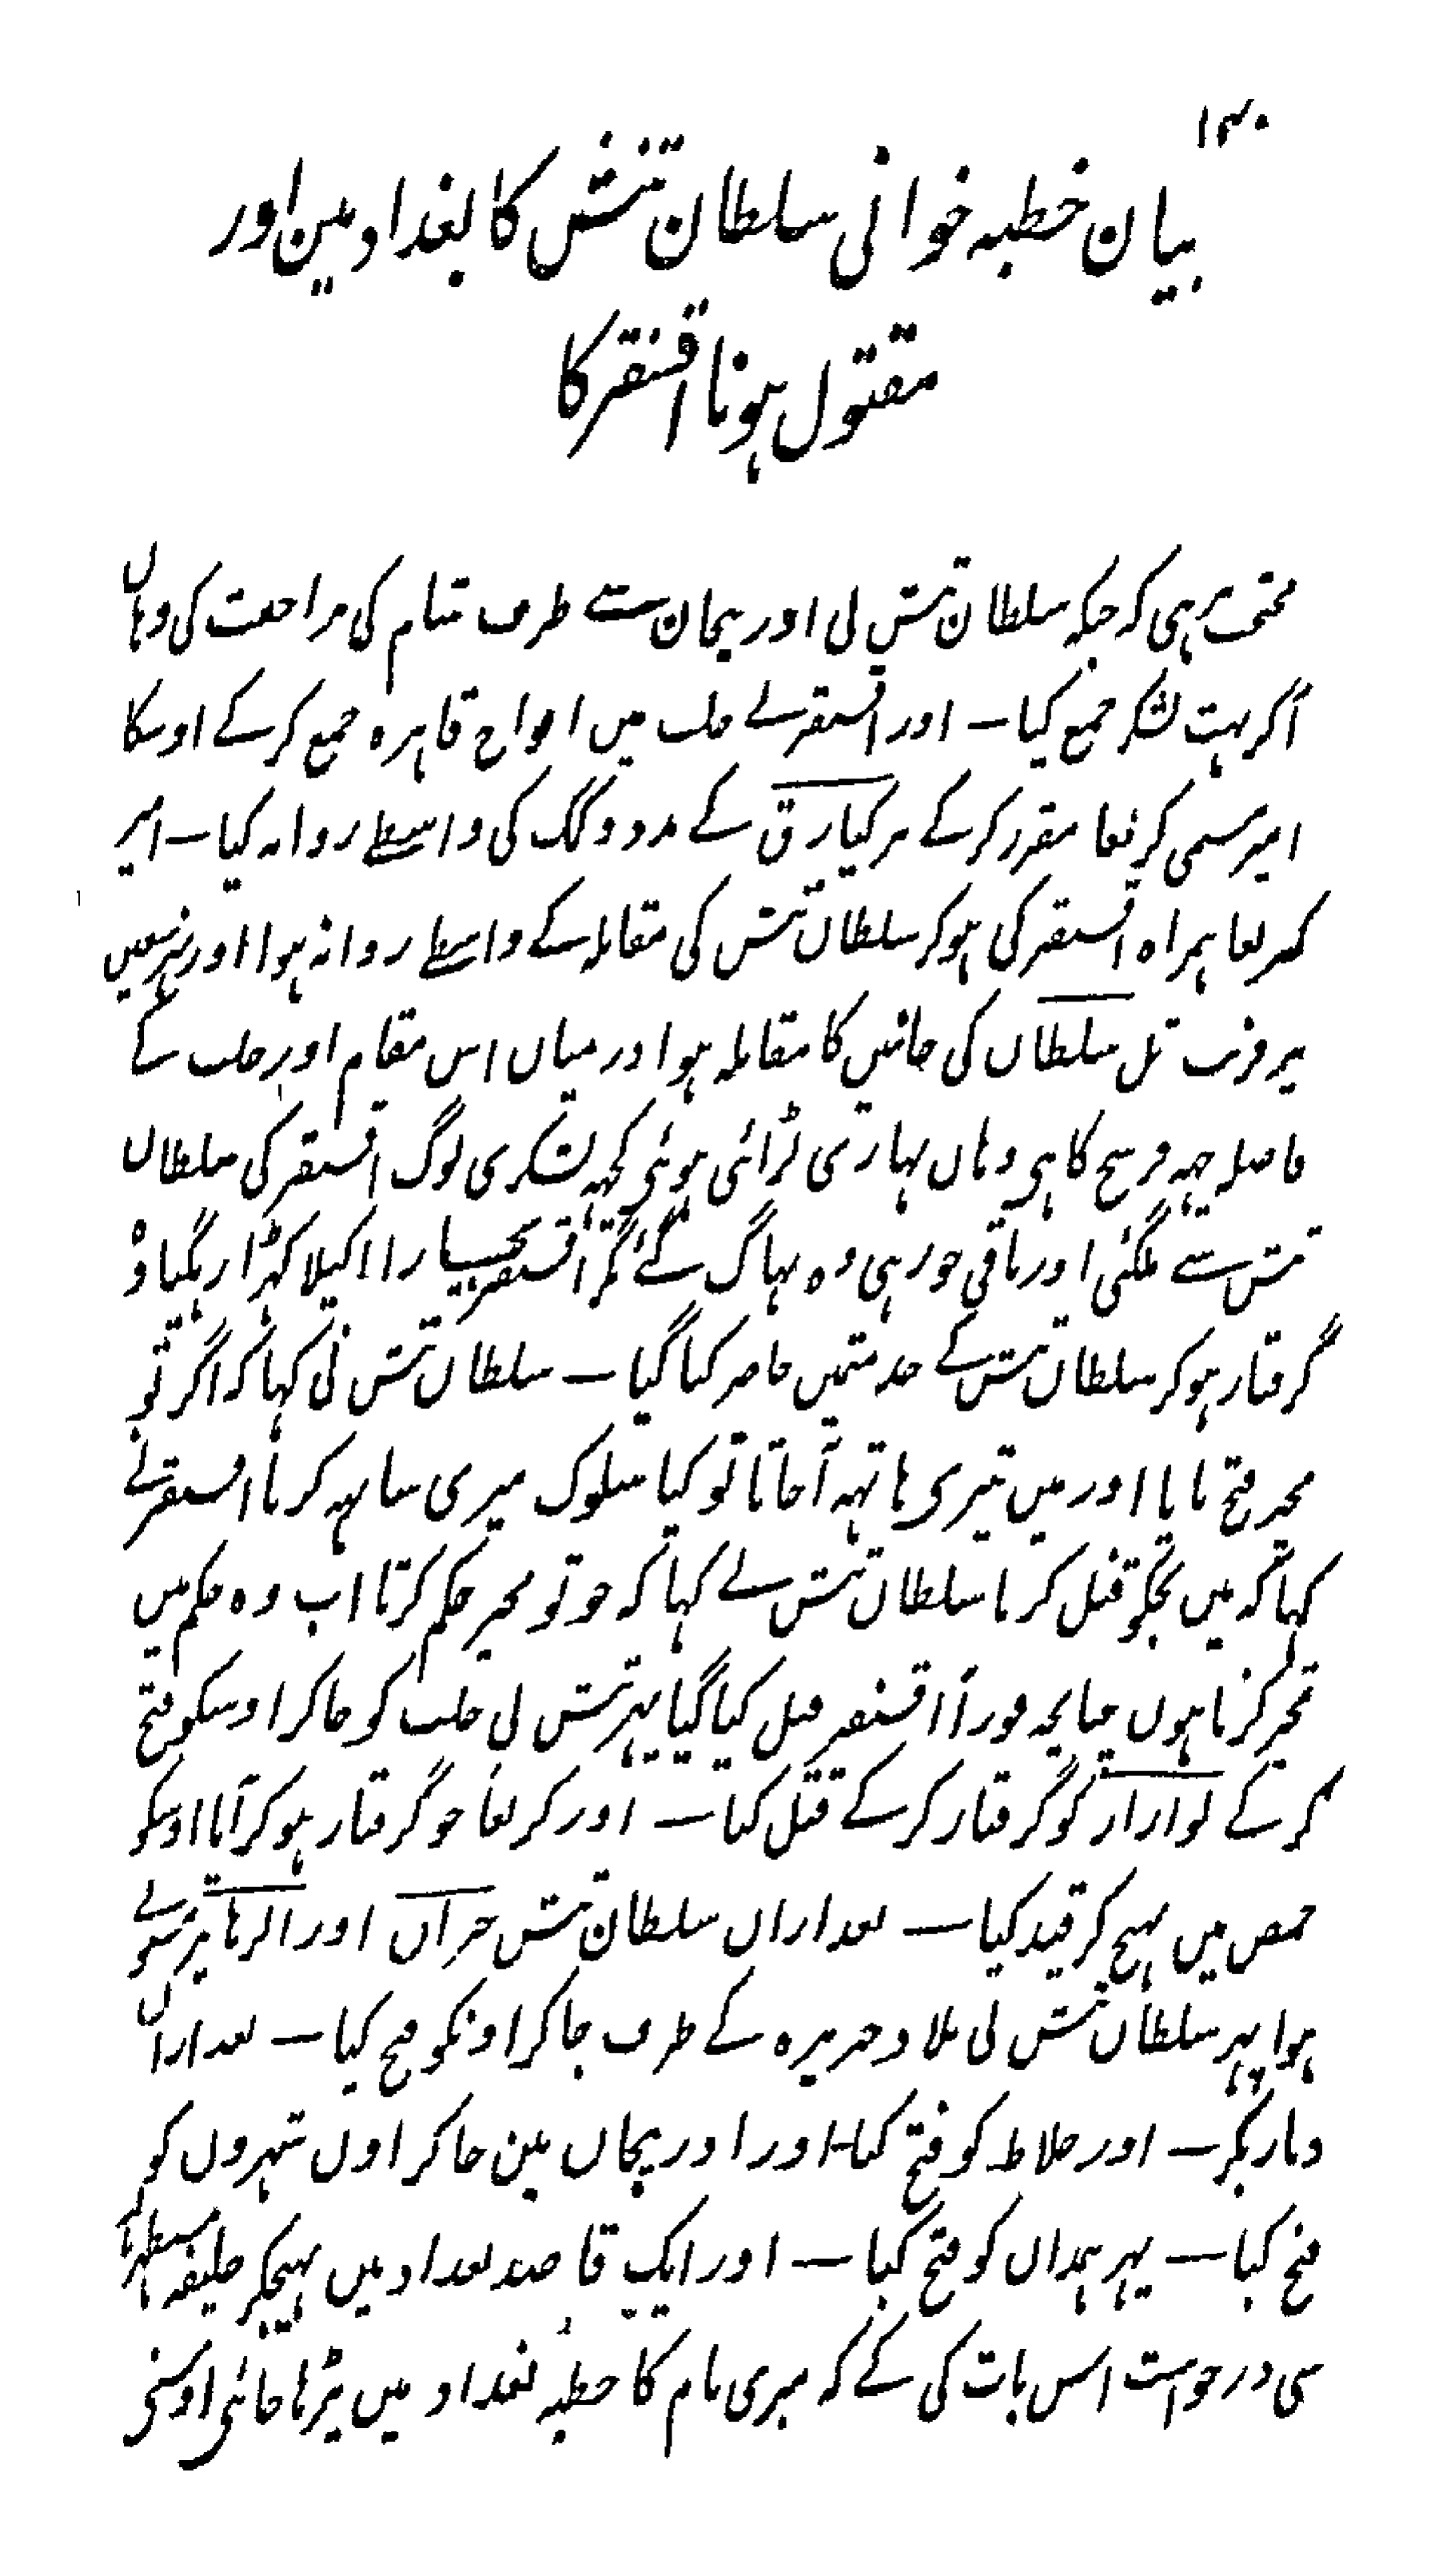 ۱۴۰
بیان خطبہ خوانی سلطان تتش کا بغداد مین اور
مقتول ہونا اقسنقر کا
مخفی نرہی کہ جبکہ سلطان تتش نی اوربیجان سے طرف شام کی مراجعت کی وہاں
آکر بہت لشکر جمع کیا ــ اور اقسنقر نے حلب میں افواج قاہرہ جمع کرکے اوسکا
امیر مسمی کربغا مقرر کرکے برکیارق کے مدد و کمک کی واسطے روانہ کیا ــ امیر
کربغا ہمراہ اقسنقر کی ہوکر سلطان تتش کی مقابلہ کے واسطے روانہ ہوا اور نہر سبعین
پر قریب تل سلطان کی جانبین کا مقابلہ ہوا درمیان اس مقام اور حلب کے
فاصلہ چہہ فرسخ کا ہی وہاں بہاری لڑائی ہوئی کچہہ لشکری لوگ اقسنقر کی سلطان
تتش سے ملگئی اور باقی جو رہی وہ بہاگ گئے مگر اقسنقر بیچارا اکیلا کہڑا رہگیا وہ
گرفتار ہوکر سلطان تتش کے خدمتمیں حاضر کیا گیا ــ سلطان تتش نی کہا کہ اگر تو
مجپر فتح پاتا اور میں تیری ہاتہہ آجاتا تو کیا سلوک میری ساتہہ کرتا اقسنقر نے
کہا کہ میں تجکو قتل کرتا سلطان تتش نے کہا کہ جو تو مجپر حکم کرتا اب وہ حکم میں
تجپر کرتا ہوں چنانچہ فوراً اقسنقر قتل کیا گیا پہر تتش نی حلب کو جاکر اوسکو فتح
کرکے بوازار کو گرفتار کرکے قتل کیا ــ اور کربغا جو گرفتار ہوکر آیا اوسکو
حمص میں بہیج کر قید کیا ــ بعد ازاں سلطان تتش حران اور الرہا پر مستولے
ہوا پہر سلطان تتش نی بلاد جزیرہ کے طرف جاکر اونکو فتح کیا ــ بعد ازاں
دیار بکر ــ اور خلاط کو فتح کیا ــ اور اوربیجان مین جاکر اون شہروں کو
فتح کیا ــ پہر ہمدان کو فتح کیا ــ اور ایک قاصد بغداد میں بہیجکر خلیفہ مستظہر باللہ
سی درخواست اس بات کی کے کہ میری نام کا خطبہ بغداد میں پڑہا جائی اوسنی